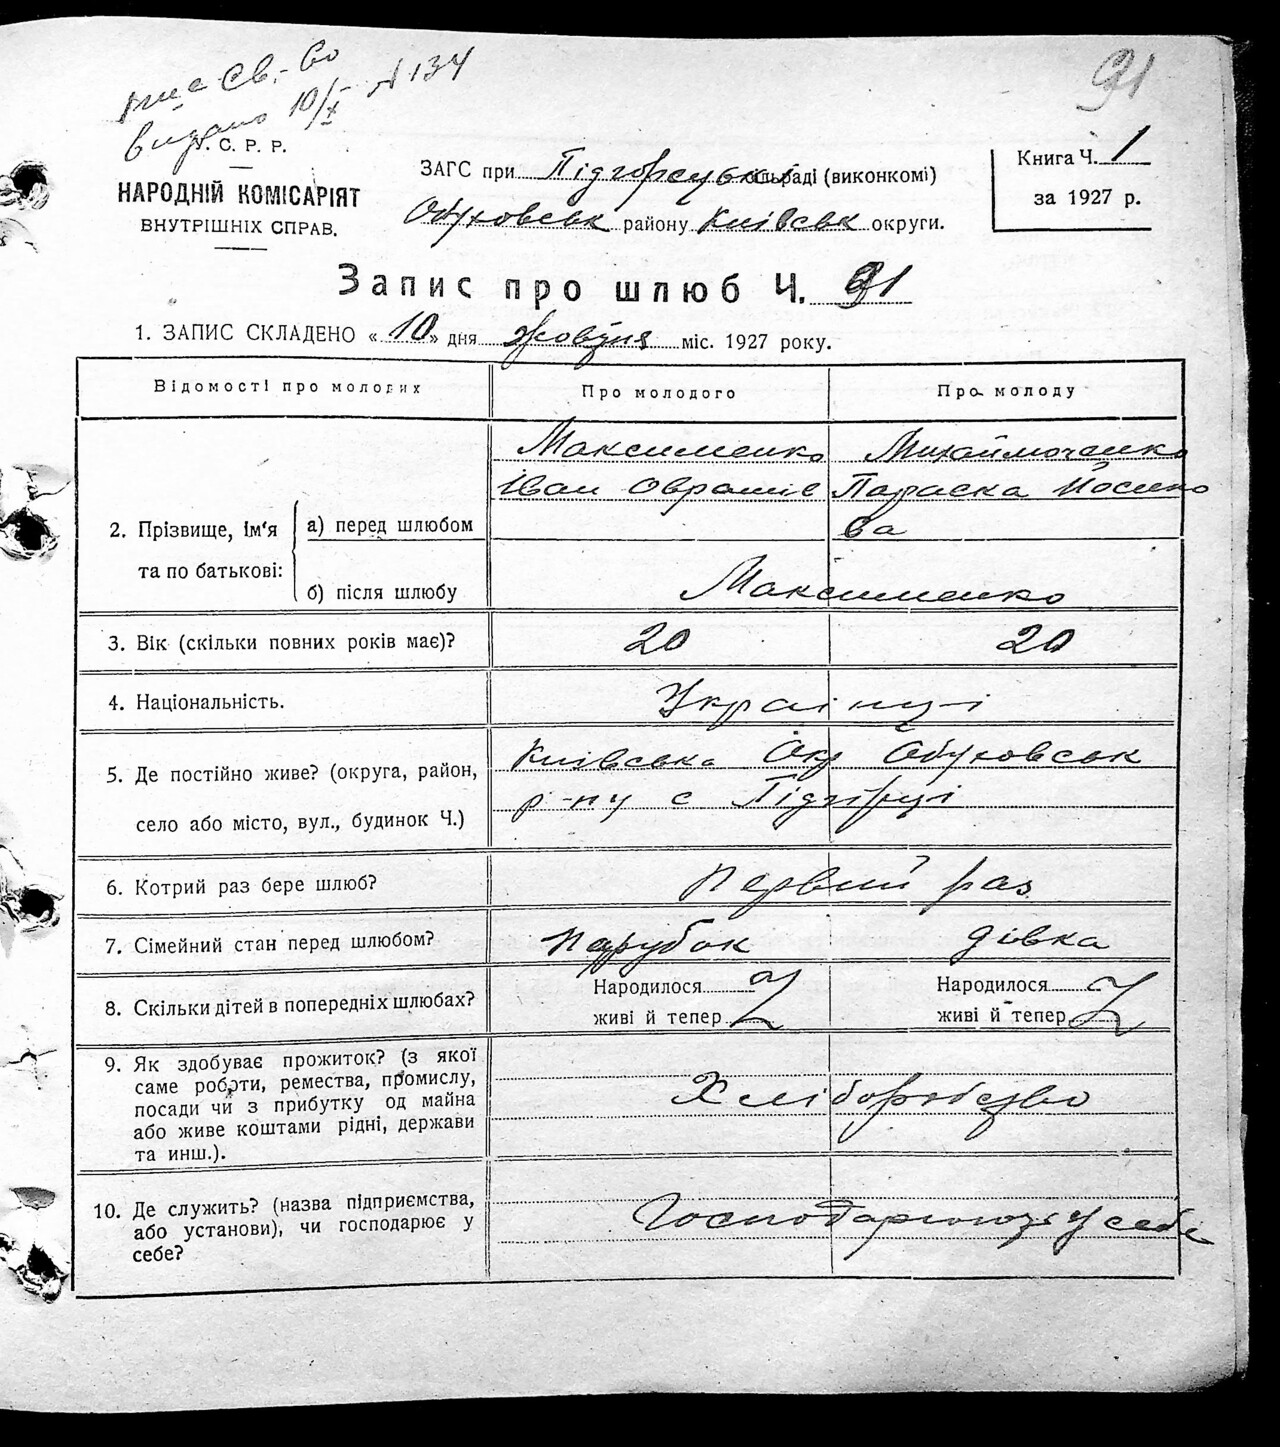 св-во
видано 10/X № 134
91
У. С. Р. Р.
НАРОДНІЙ КОМІСАРІЯТ
ВНУТРІШНІХ СПРАВ.
ЗАГС при Підгорсу сільраді (виконкомі)
Обуховськ району Київськ округи.
Книга Ч. 1
за 1927 р.
Запис про шлюб Ч. 91
1. ЗАПИС СКЛАДЕНО « 10 » дня жовтня міс. 1927 року.
Відомості про молодих
Про молодого
Про молоду
2. Прізвище, ім'я та по батькові:
а) перед шлюбом
Максименко
Іван Оврамів
Михаймоченко
Параска Йосипо
ва
б) після шлюбу
Максименко
3. Вік (скільки повних років має)?
20
20
4. Національність.
Українці
5. Де постійно живе? (округа, район,
село або місто, вул., будинок Ч.)
Київська Окр Обуховськ
р-ну с Підгірці
6. Котрий раз бере шлюб?
Первий раз
7. Сімейний стан перед шлюбом?
парубок
дівка
8. Скільки дітей в попередніх шлюбах?
Народилося
живі й тепер
Народилося
живі й тепер
9. Як здобуває прожиток? (з якої
саме роботи, ремества, промислу,
посади чи з прибутку од майна
або живе коштами рідні, держави
та инш.).
Хліборобство
10. Де служить? (назва підприємства,
або установи), чи господарює у
себе?
Господарюють у себе